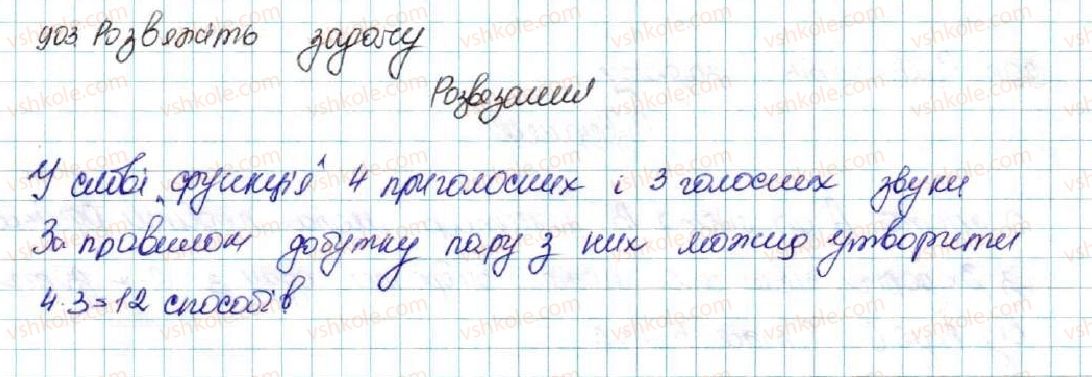 903 Розвяжіть задачу
Розвезання
У слові „функція" 4 приголосних і 3 голосних звуки
За правилом добутку пару з них можна утворити
4·3=12 способів